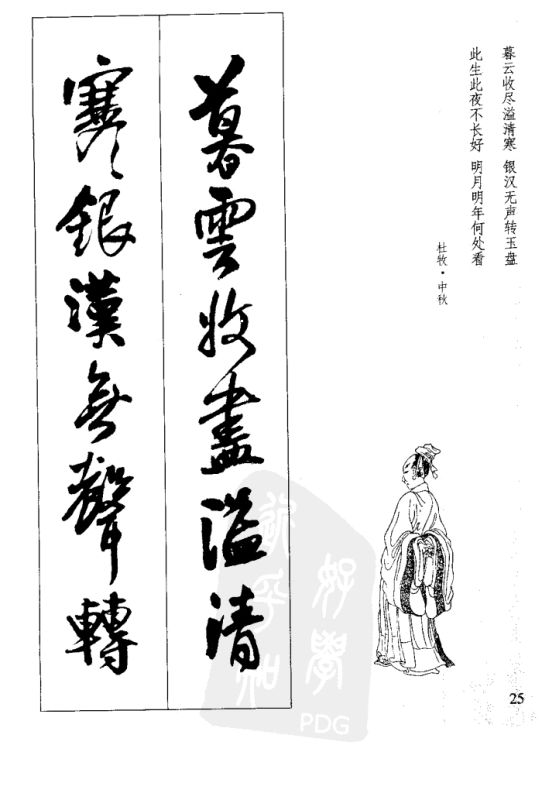 暮云收尽溢清寒 银汉无声转玉盘
此生此夜不长好 明月明年何处看
杜牧·中秋
暮雲收盡溢清
寒銀漢無聲轉
好學
近乎知
PDG
25